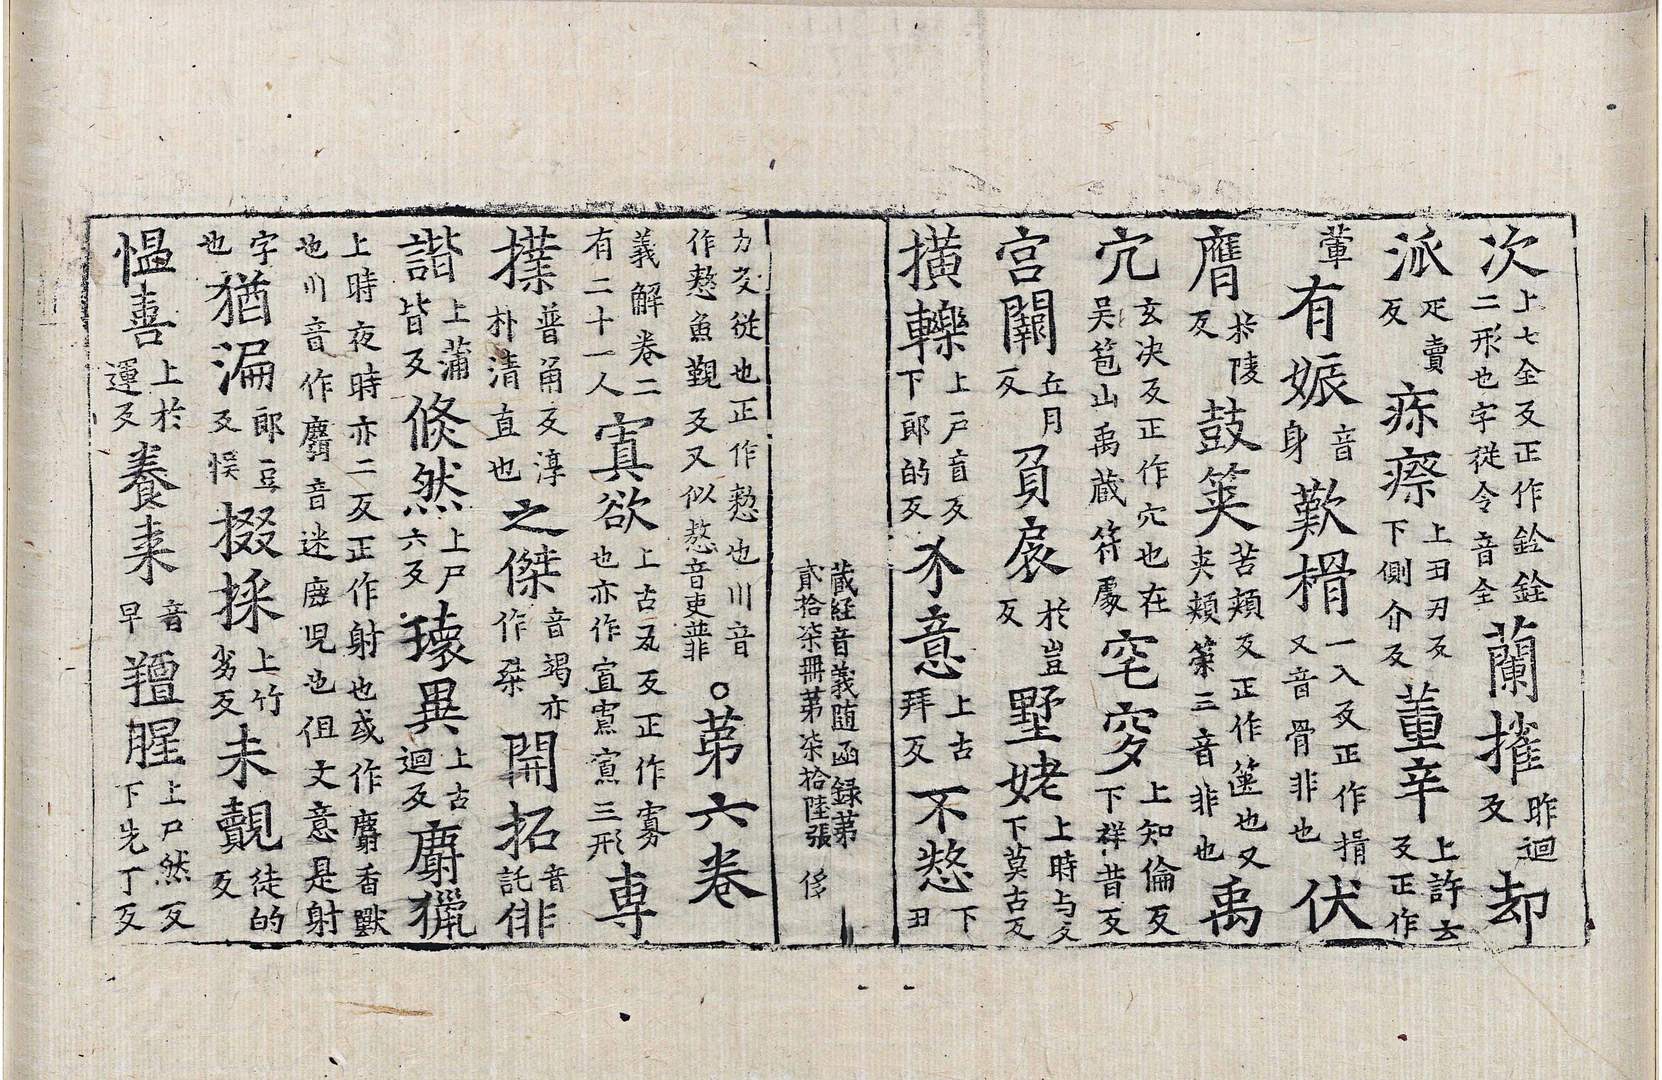 次上七全反正作銓銓二形也字從令音全蘭摧昨迴反却
派疋賣反瘵瘵上丑刃反下側介反董辛上許云反正作
葷有娠音身歎榾一入反正作揖又音骨非也伏
膺於陵反鼓筴苦頰反正作篋也又夾頰筞三音非也禹
穴玄决反正作穴也在吳苞山禹藏符處窀穸上知倫反下祥昔反
宮闕丘月反負扆於豈反墅姥上時与反下莫古反
擯轢上戶盲反下郎的反不意上古拜反不憗下丑
藏經音義随函録第貳拾柒冊第柒拾陸張
力反從也正作憗也川音作憖魚覲反又似憖音吏菲○第六卷
義解卷二有二十一人寘欲上古瓦反正作寡也亦作𡧓𡩋𡪢三形専
撲普角反淳朴清直也之傑音竭亦作桀開拓音託俳
諧上蒲皆反倏然上尸六反瓌異上古迴反麝獵
上時夜時亦二反正作射也或作麝香獸也川音作麝音迷鹿兒也但文意是射
字也猶漏郎豆反悮掇採上竹劣反未覿徒的反
愠喜上於運反養来音早羶腥上尸然反下先丁反